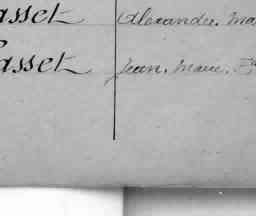 asset Alexandre, Ma
asset Jean, Marie, E